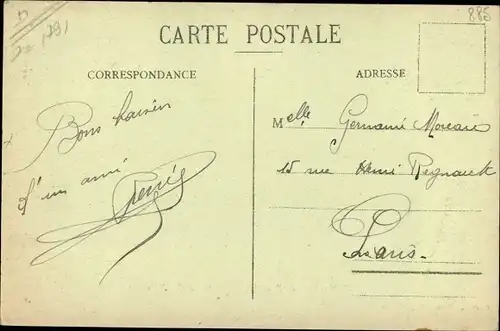 885
CARTE POSTALE
CORRESPONDANCE
ADRESSE
Bons baisers
d'un ami
René
Melle Germaine Moreau
15 rue Henri Regnault
Paris.